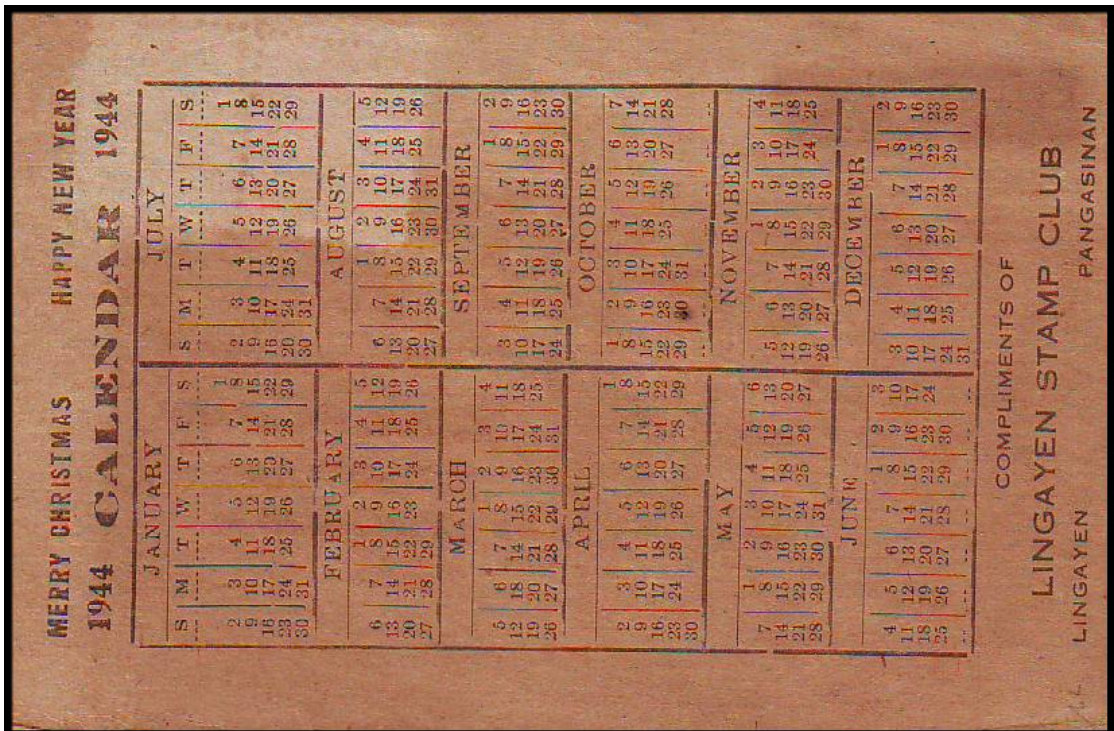 MERRY CHRISTMAS HAPPY NEW YEAR
1944 CALENDAR 1944
JANUARY
S M T W T F S
1
2 3 4 5 6 7 8
9 10 11 12 13 14 15
16 17 18 19 20 21 22
23 24 25 26 27 28 29
30 31
FEBRUARY
1 2 3 4 5
6 7 8 9 10 11 12
13 14 15 16 17 18 19
20 21 22 23 24 25 26
27 28 29
MARCH
1 2 3 4
5 6 7 8 9 10 11
12 18 14 15 16 17 18
19 20 21 22 23 24 25
26 27 28 29 30 31
APRIL
1
2 3 4 5 6 7 8
9 10 11 12 13 14 15
16 17 18 19 20 21 22
23 24 25 26 27 28 29
30
MAY
1 2 3 4 5 6
7 8 9 10 11 12 13
14 15 16 17 18 19 20
21 22 23 24 25 26 27
28 29 30 31
JUNE
1 2 3
4 5 6 7 8 9 10
11 12 13 14 15 16 17
18 19 20 21 22 23 24
25 26 27 28 29 30
JULY
S M T W T F S
1
2 3 4 5 6 7 8
9 10 11 12 13 14 15
16 17 18 19 20 21 22
20 24 25 26 27 28 29
30 31
AUGUST
1 2 3 4 5
6 7 8 9 10 11 12
13 14 15 16 17 18 19
20 21 22 23 24 25 26
27 28 29 30 31
SEPTEMBER
1 2
3 4 5 6 7 8 9
10 11 12 13 14 15 16
17 18 19 20 21 22 23
24 25 26 27 28 29 30
OCTOBER
1 2 3 4 5 6 7
8 9 10 11 12 13 14
15 16 17 18 19 20 21
22 23 24 25 26 27 28
29 30 31
NOVEMBER
1 2 3 4
5 6 7 8 9 10 11
12 13 14 15 16 17 18
19 20 21 22 23 24 25
26 27 28 29 30
DECEMBER
1 2
3 4 5 6 7 8 9
10 11 12 13 14 15 16
17 18 19 20 21 22 23
24 25 26 27 28 29 30
31
COMPLIMENTS OF
LINGAYEN STAMP CLUB
LINGAYEN PANGASINAN